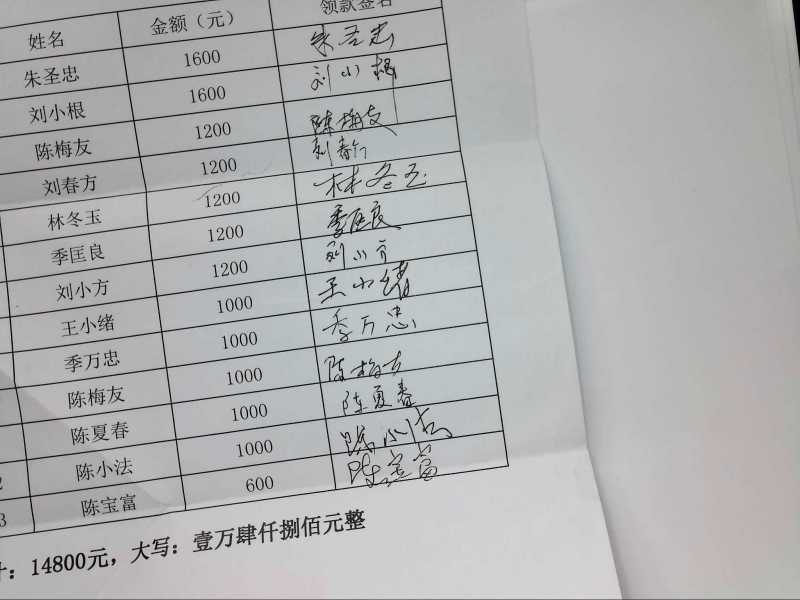 姓名 金额（元） 领款签名
朱圣忠 1600 朱圣忠
刘小根 1600 刘小根
陈梅友 1200 陈梅友
刘春方 1200 刘春方
林冬玉 1200 林冬玉
季匡良 1200 季匡良
刘小方 1200 刘小方
王小绪 1000 王小绪
季万忠 1000 季万忠
陈梅友 1000 陈梅友
陈夏春 1000 陈夏春
2 陈小法 1000 陈小法
3 陈宝富 600 陈宝富
计：14800元，大写：壹万肆仟捌佰元整